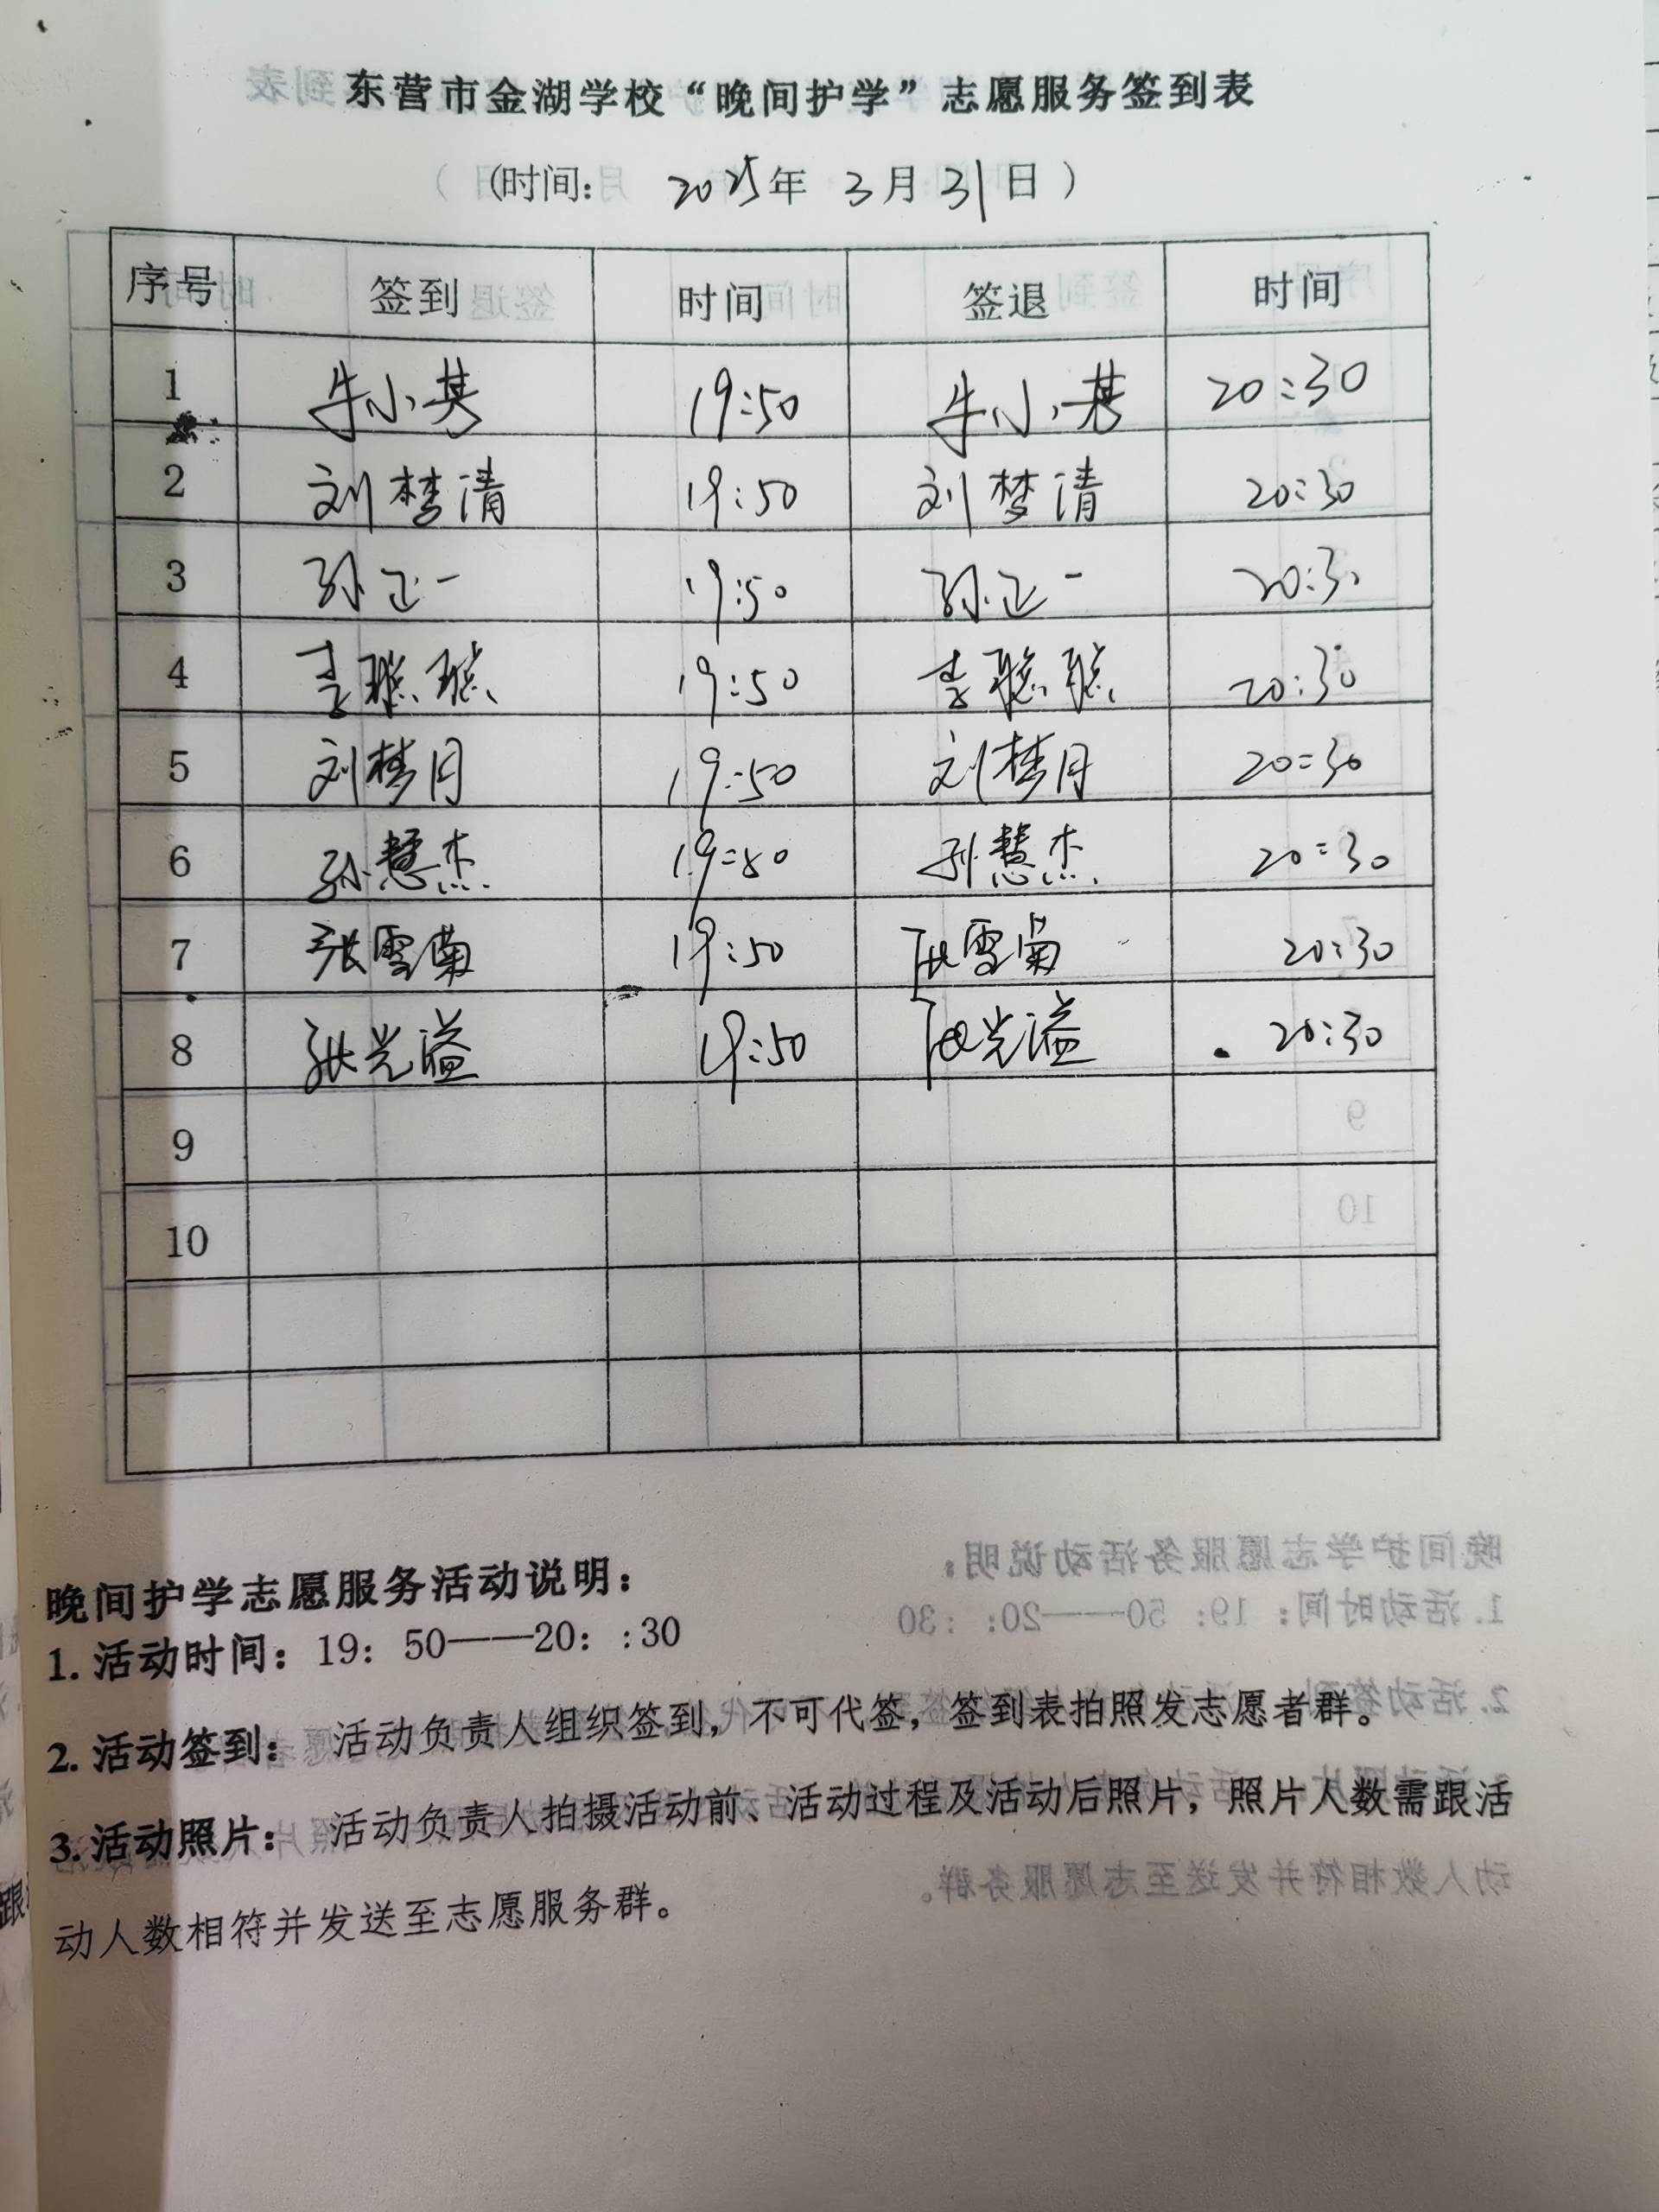 东营市金湖学校“晚间护学”志愿服务签到表
(时间: 2025年 3月31日)
序号 签到 时间 签退 时间
1 牛小其 19:50 牛小其 20:30
2 刘梦清 19:50 刘梦清 20:30
3 孙正一 19:50 孙正一 20:30
4 李聪聪 19:50 李聪聪 20:30
5 刘梦月 19:50 刘梦月 20:30
6 孙慧杰 19:50 孙慧杰 20:30
7 张雪菊 19:50 张雪菊 20:30
8 张光溢 19:50 张光溢 20:30
9
10
晚间护学志愿服务活动说明:
1.活动时间: 19: 50——20: :30
2.活动签到: 活动负责人组织签到,不可代签,签到表拍照发志愿者群。
3.活动照片: 活动负责人拍摄活动前、活动过程及活动后照片,照片人数需跟活
动人数相符并发送至志愿服务群。